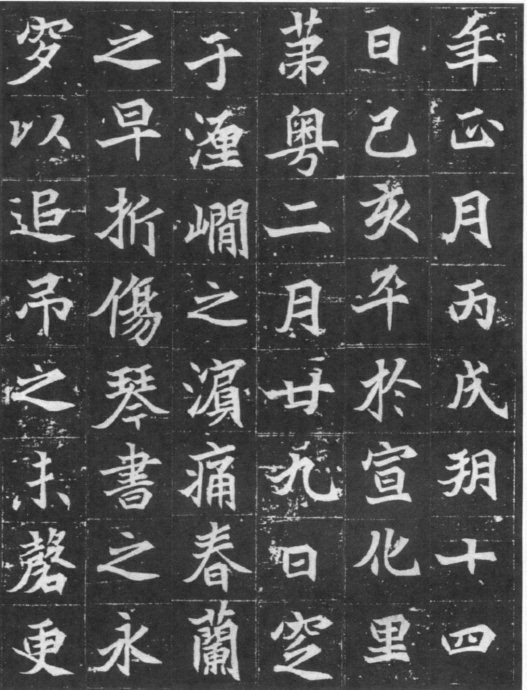 年正月丙戌朔十四
日己亥卒於宣化里
苐粤二月廿九日窆
于湹澗之濵痛春蘭
之早折傷琴書之永
穸以追吊之未罄更